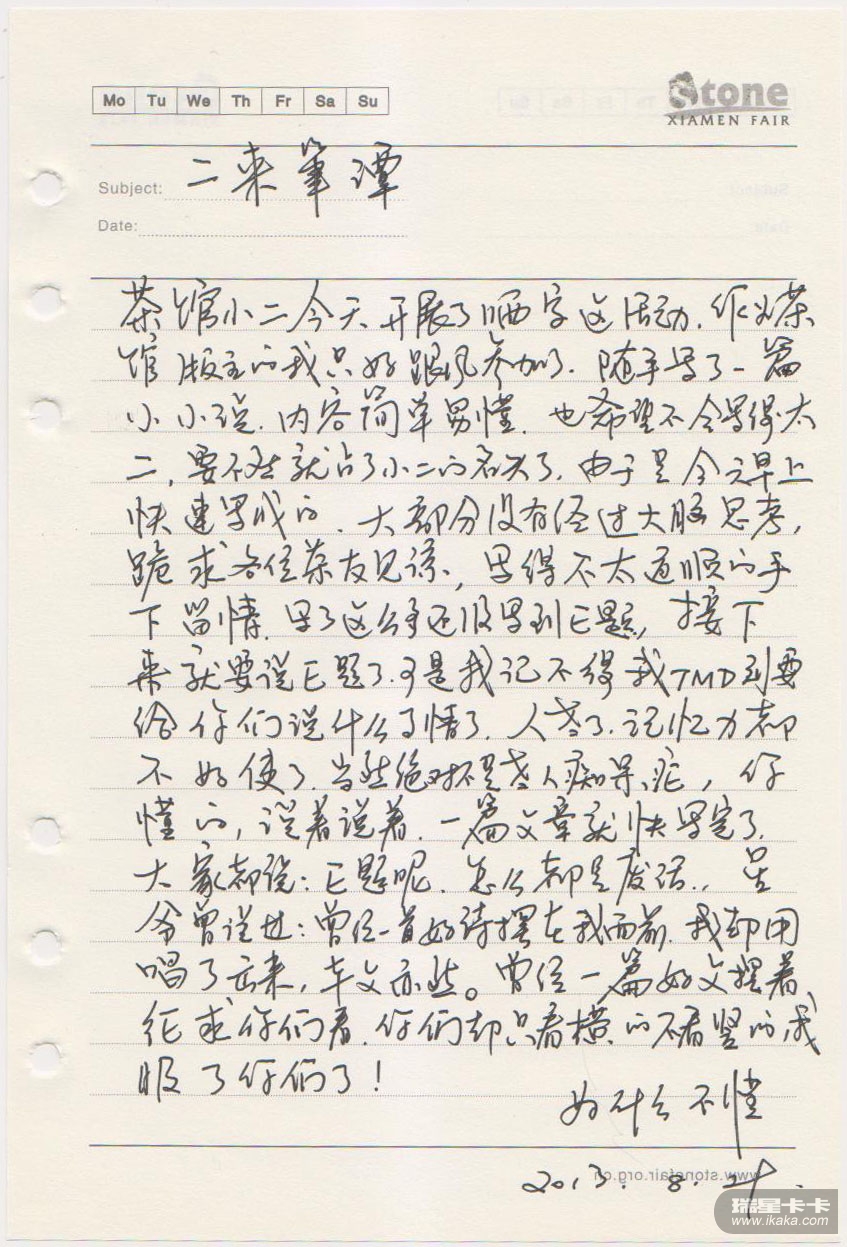 Mo Tu We Th Fr Sa Su
Stone
XIAMEN FAIR
Subject: 二来筆谭
Date:
茶馆小二今天开展了晒字这活动.作为茶
馆版主的我只好跟风参加了.随手写了一篇
小小说.内容简单易懂.也希望不会写得太
二,要不然就占了小二的名头了.由于是今天早上
快速写成的.大部分没有经过大脑思考,
跪求各位茶友见谅,写得不太通顺的手
下留情.写了这么多还没写到正题,接下
来就要说正题了.可是我记不得我TMD到要
给你们说什么事情了.人老了.记忆力都
不好使了.当然绝对不是老人痴呆症,你
懂的,说着说着.一篇文章就快写完了.
大家都说:正题呢.怎么都是废话.,星
爷曾说过:曾经一首好诗摆在我面前.我却用
唱了出来,本文亦然。曾经一篇好文摆着
征求你们看.你们却只看横的不看竖的,我
服了你们了!
为什么不懂
www.stonefair.org.cn
2013.8.21.
瑞星卡卡
www.ikaka.com